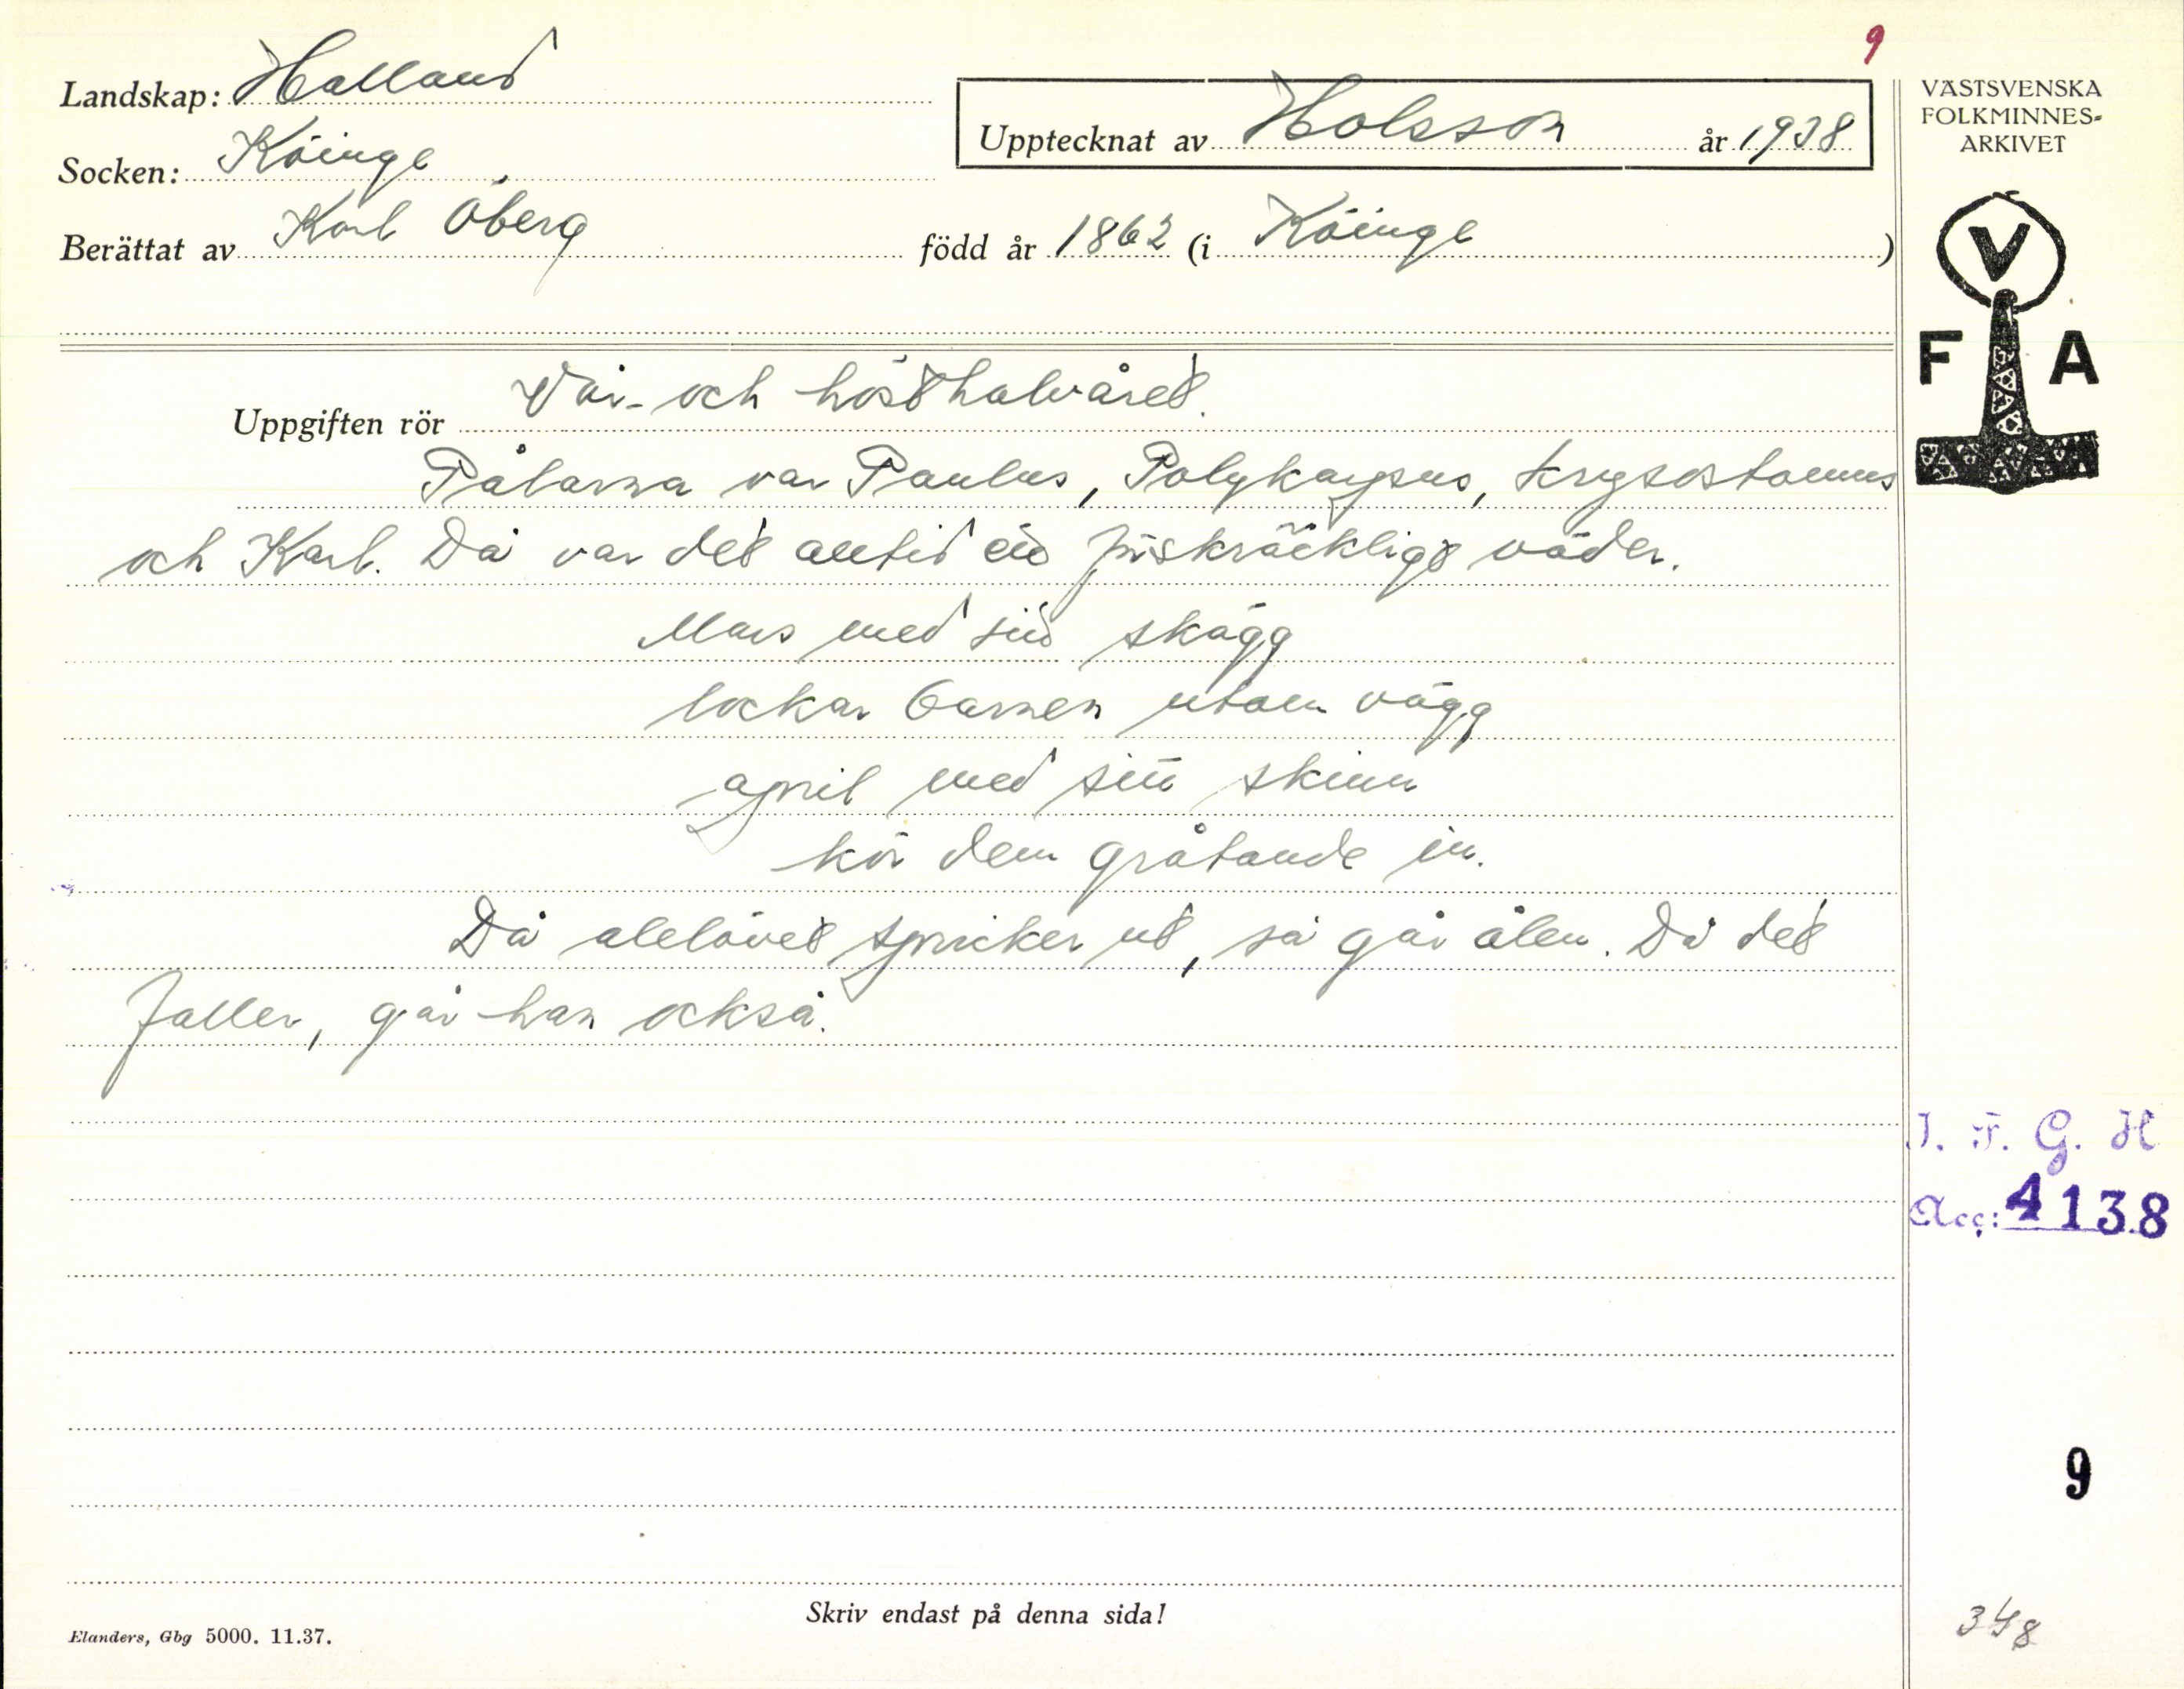 9
Landskap: Halland
Socken: Köinge
Upptecknat av Holsson år 1938
Berättat av Karl Öberg född år 1862 (i Köinge)
VÄSTSVENSKA
FOLKMINNES-
ARKIVET
V
F A
Uppgiften rör Vår- och hösthalvåret.
Pålarna var Paulus, Polykarpus, Krysostomus
och Karl. Då var det alltid ett förskräckligt väder.
Mars med sitt skägg
lockar barnen utom vägg
april med sitt skinn
kör dem gråtande in.
Då alelövet spricker ut, så går ålen. Då det
faller, går han också.
I. F. G. H
Acc: 4138
9
Skriv endast på denna sida!
Elanders, Gbg 5000. 11.37.
348